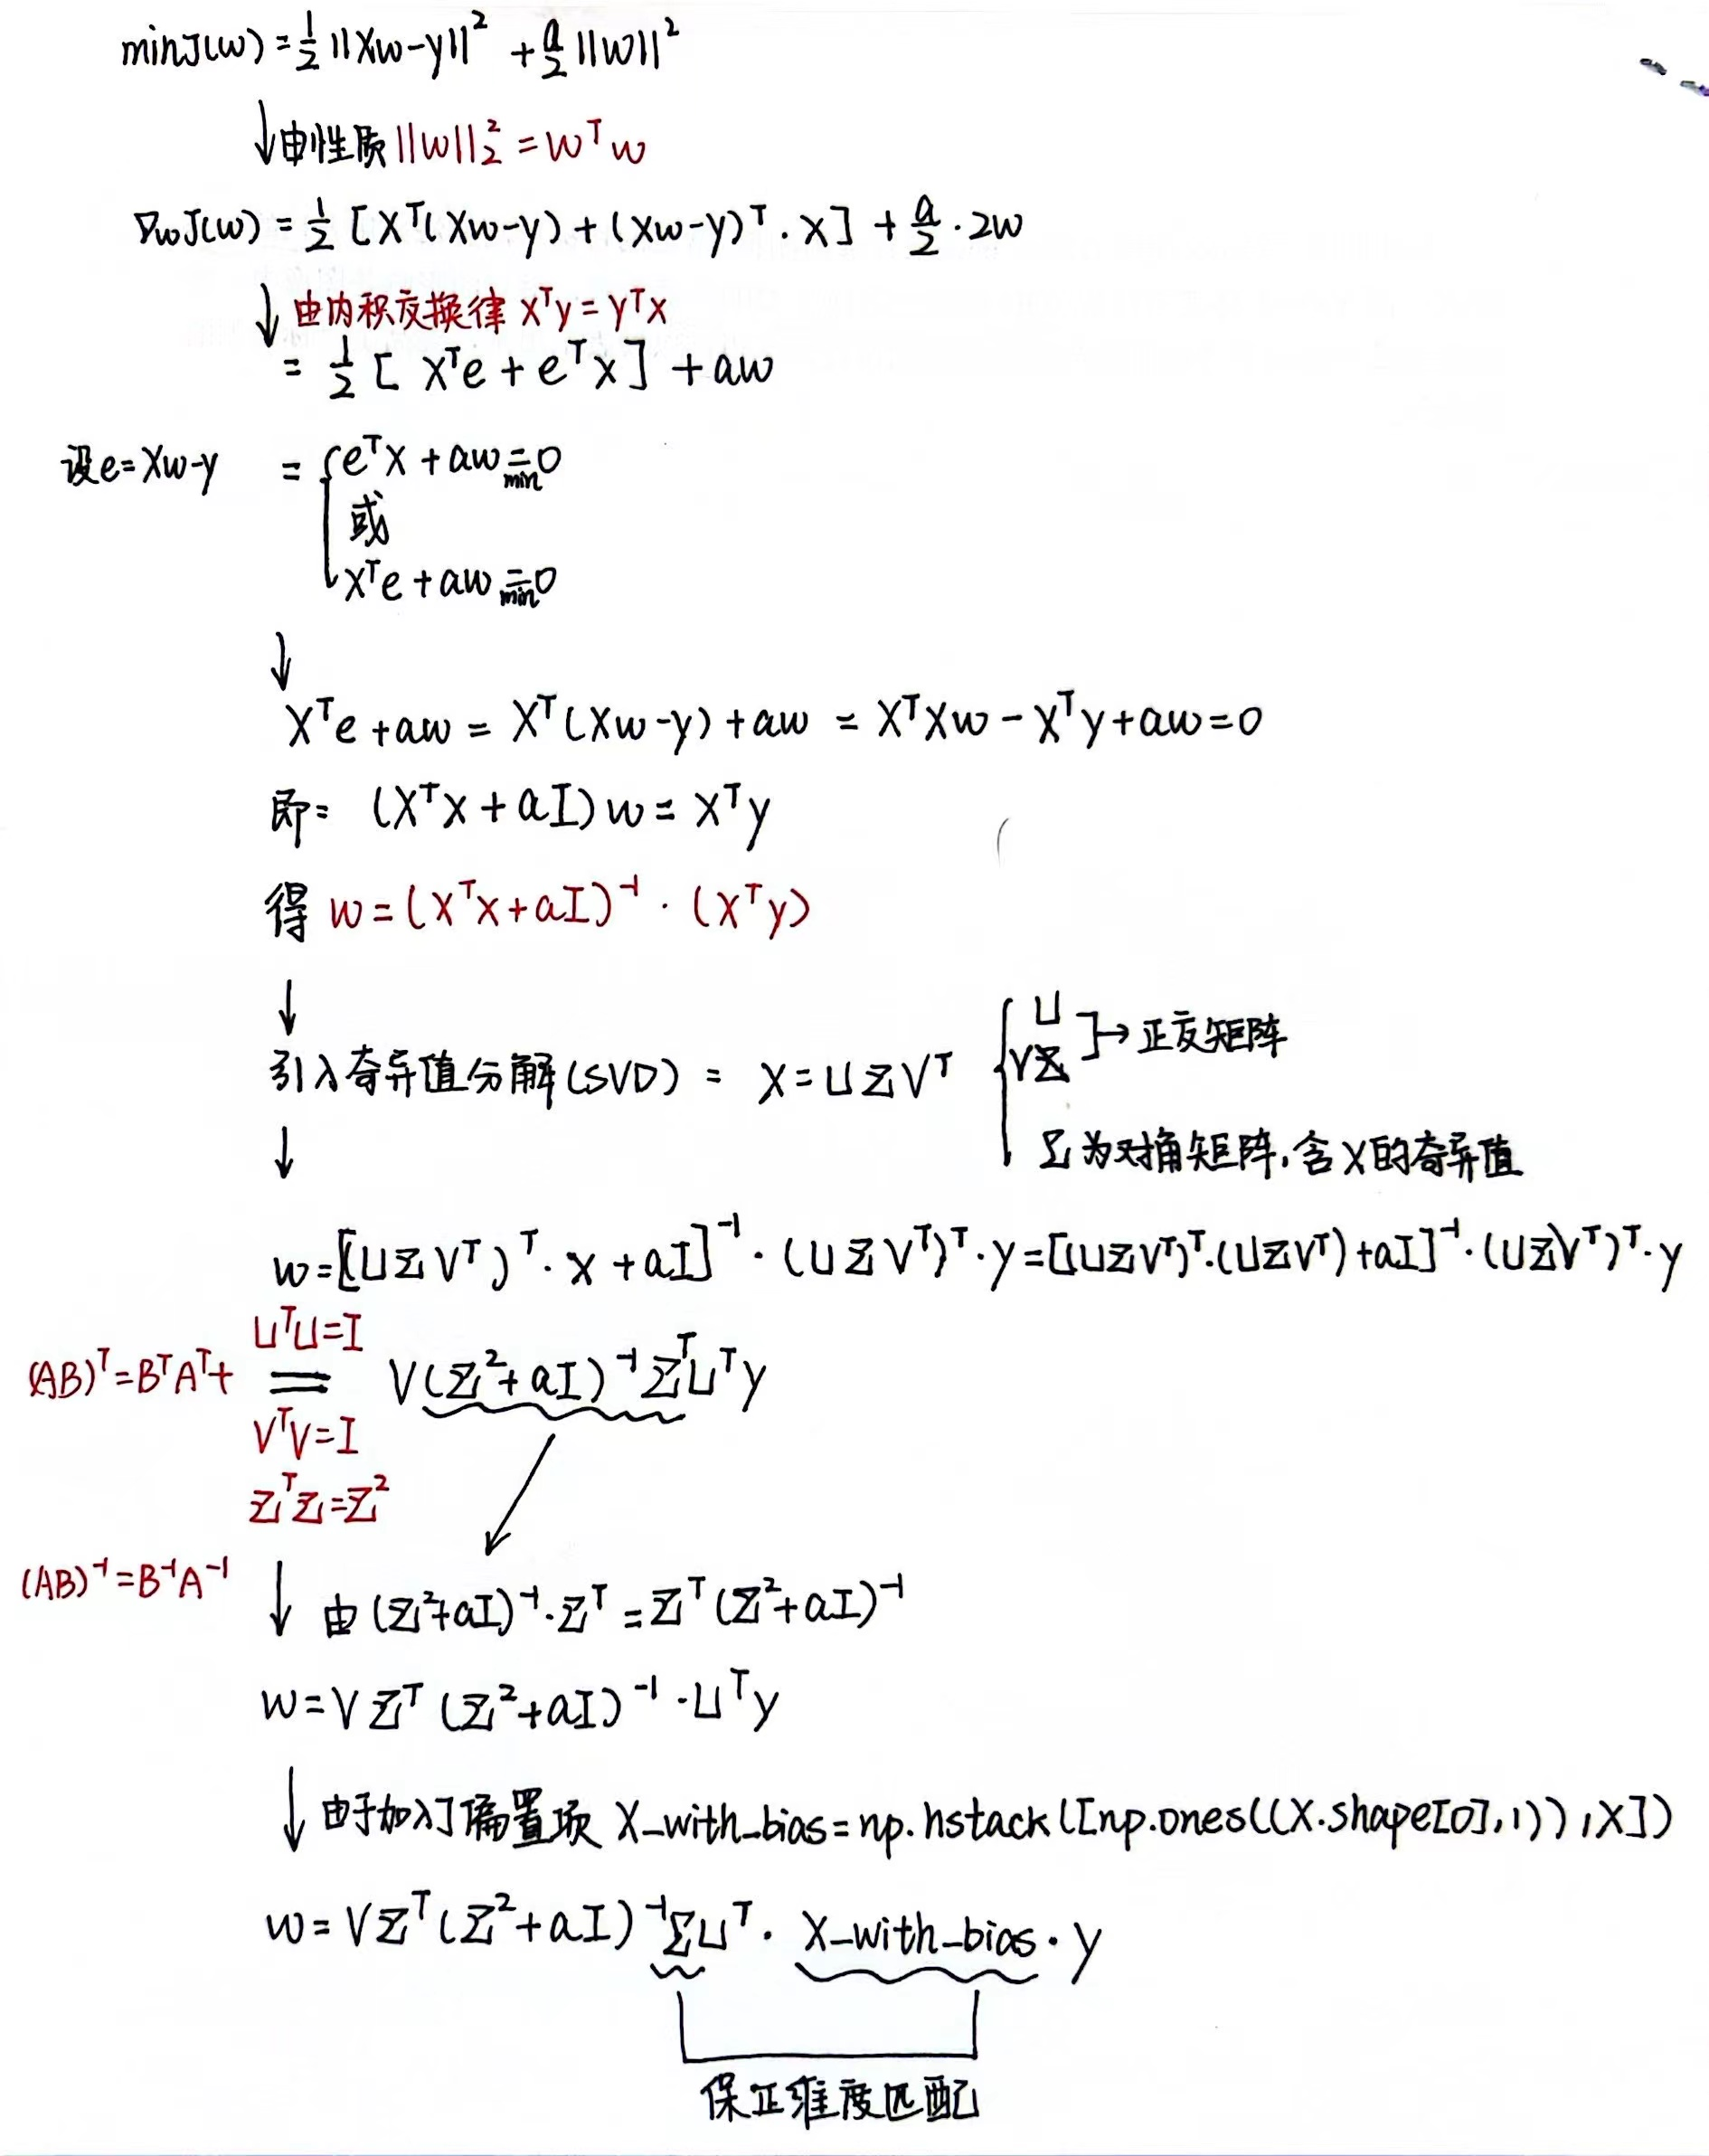 minJ(w) = ½||Xw-y||² + a/2||w||²
↓由性质||w||₂² = wᵀw
∇wJ(w) = ½[Xᵀ(Xw-y) + (Xw-y)ᵀ·X] + a/2·2w
↓由内积交换律 xᵀy = yᵀx
= ½[Xᵀe + eᵀX] + aw
设e=Xw-y = {eᵀX + aw = 0 min
或
Xᵀe + aw = 0 min
↓
Xᵀe + aw = Xᵀ(Xw-y) + aw = XᵀXw - Xᵀy + aw = 0
即: (XᵀX + aI)w = Xᵀy
得 w = (XᵀX + aI)⁻¹·(Xᵀy)
↓
引入奇异值分解(SVD): X = UΣVᵀ { U V → 正交矩阵
↓ Σ为对角矩阵,含X的奇异值
w = [(UΣVᵀ)ᵀ·X + aI]⁻¹·(UΣVᵀ)ᵀ·y = [(UΣVᵀ)ᵀ·(UΣVᵀ) + aI]⁻¹·(UΣVᵀ)ᵀ·y
UᵀU=I
(AB)ᵀ=BᵀAᵀ+ = V(Σ² + aI)⁻¹ΣᵀUᵀy
VᵀV=I
ΣᵀΣ=Σ²
(AB)⁻¹=B⁻¹A⁻¹ ↓ 由(Σ²+aI)⁻¹·Σᵀ = Σᵀ(Σ²+aI)⁻¹
w = VΣᵀ(Σ²+aI)⁻¹·Uᵀy
↓由于加入了偏置项 X_with_bias = np.hstack([np.ones((X.shape[0],1)),X])
w = VΣᵀ(Σ²+aI)⁻¹ΣUᵀ·X_with_bias·y
保证维度匹配